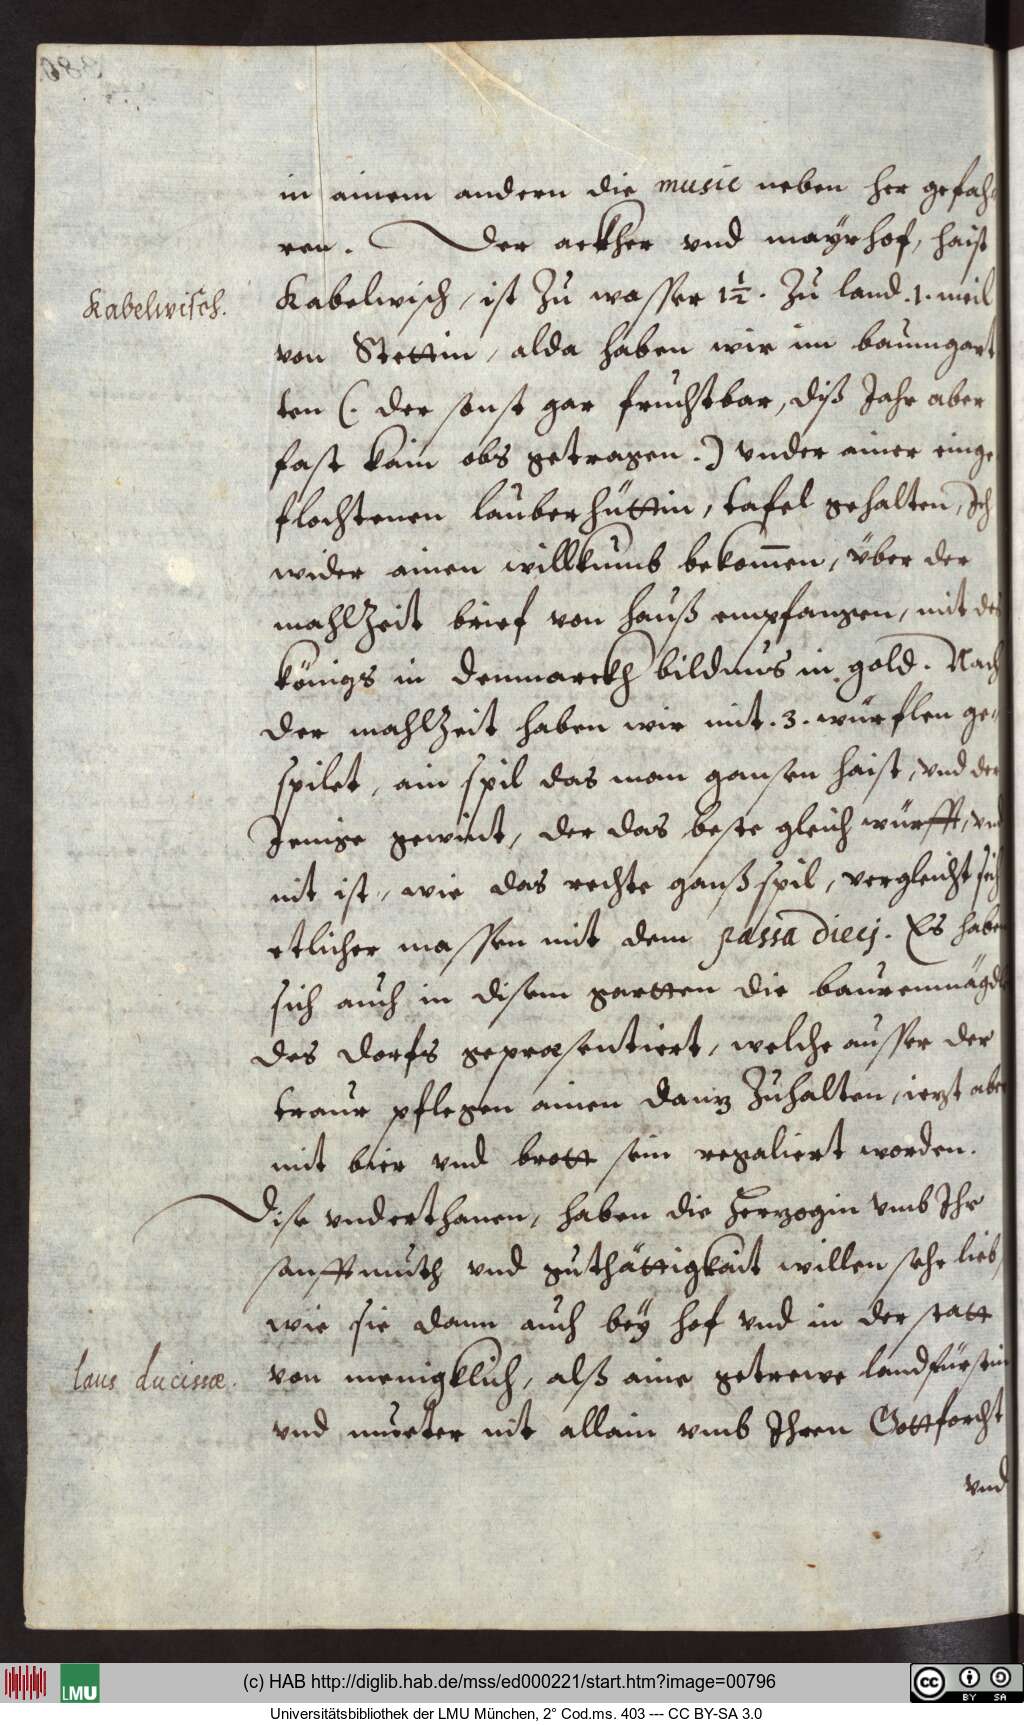 in ainem andern die music neben her gefah-
ren. Der ackher vnd mayrhof, haist
Kabelwisch.
Kabelwisch, ist Zu wasser 1½. Zu land .1. meil
von Stettin, alda haben wir im baumgart
ten (. der sonst gar fruchtbar, diß Jahr aber
fast kain obs getragen .) vnder ainer einge
flochtenen lauberhüttin, tafel gehalten, Ich
wider ainen willkumb bekom̄en, über der
mahlZeit brief von hauß empfangen, mit des
königs in Denmarckh bildnus in gold. Nach
der mahlZeit haben wir mit .3. würflen ge-
spilet, ain spil das man gansen haist, vnd der
Jenige gewint, der das beste gleich würfft, vnd
nit ist, wie das rechte ganßspil, vergleicht sich
etlicher massen mit dem passa dieci. Es haben
sich auch in disem gartten die baurenmägdl
des dorfs gepræsentiert, welche ausser der
traur pflegen ainen danz Zuhalten, iezt aber
mit bier vnd brott sein regaliert worden.
Dise vnderthanen, haben die Herzogin vmb Ihr
sanfftmuth vnd guthättigkait willen sehr lieb,
wie sie dann auch bey hof vnd in der statt
laus ducissæ.
von menigklich, alß aine getrewe landfürstin
vnd mueter nit allain vmb Ihren Gottforcht
vnd
(c) HAB http://diglib.hab.de/mss/ed000221/start.htm?image=00796
LMU
cc BY SA
Universitätsbibliothek der LMU München, 2° Cod.ms. 403 --- CC BY-SA 3.0